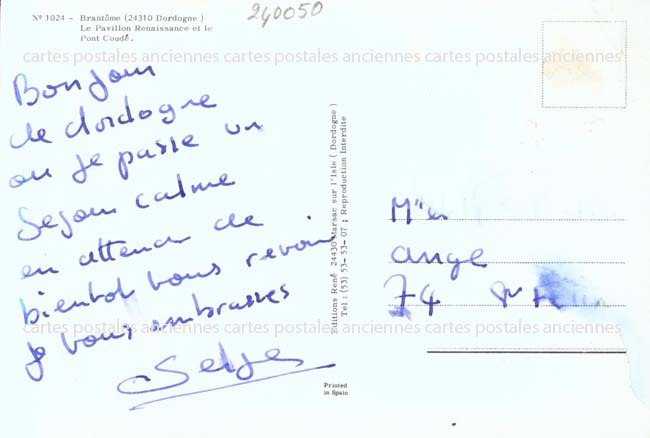 Nº 1024 - Brantôme (24310 Dordogne)
Le Pavillon Renaissance et le
Pont Coudé.
240050
cartes postales anciennes cartes postales anciennes cartes postales anciennes
Bonjour
de dordogne
ou je passe un
Sejour calme
en attendant de
bientot vous revoir
je vous embrasses
Serge
Editions René 24430 Marsac sur l'Isle (Dordogne)
Tel: (53) 53-53-07 ; Reproduction Interdite
Printed
in Spain
ange
74
cartes postales anciennes cartes postales anciennes cartes postales anciennes